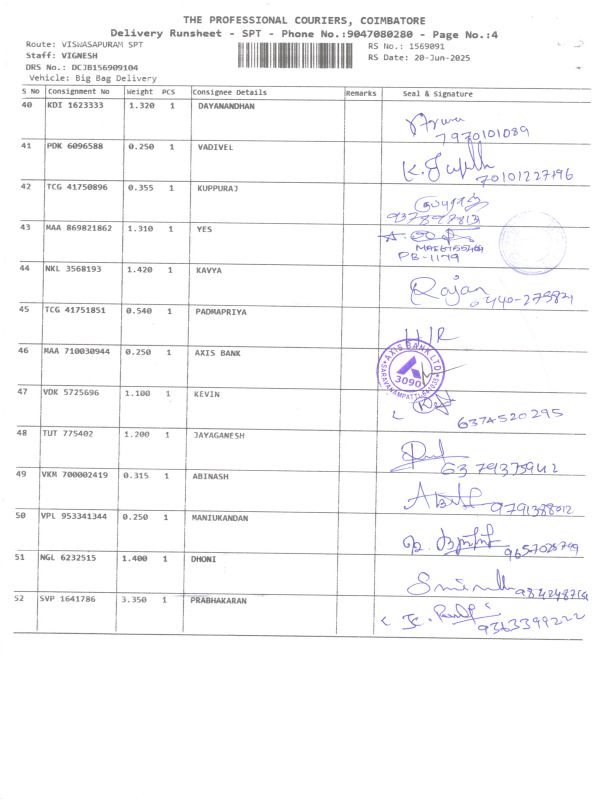 THE PROFESSIONAL COURIERS, COIMBATORE
Delivery Runsheet - SPT - Phone No.:9047080280 - Page No.:4
Route: VISWASAPURAM SPT RS No.: 1569091
Staff: VIGNESH RS Date: 20-Jun-2025
DRS No.: DCJB156909104
Vehicle: Big Bag Delivery
S No Consignment No Weight PCS Consignee Details Remarks Seal & Signature
40 KDI 1623333 1.320 1 DAYANANDHAN
7970101089
41 PDK 6096588 0.250 1 VADIVEL
70101227196
42 TCG 41750896 0.355 1 KUPPURAJ
9378978813
43 MAA 869821862 1.310 1 YES
PB-1179
44 NKL 3568193 1.420 1 KAVYA
Rajan
45 TCG 41751851 0.540 1 PADMAPRIYA
H/R
46 MAA 710030944 0.250 1 AXIS BANK
AXIS BANK LTD
3090
47 VDK 5725696 1.100 1 KEVIN
6374520295
48 TUT 775402 1.200 1 JAYAGANESH
49 VKM 700002419 0.315 1 ABINASH
50 VPL 953341344 0.250 1 MANIUKANDAN
51 NGL 6232515 1.400 1 DHONI
52 SVP 1641786 3.350 1 PRABHAKARAN
9363399222